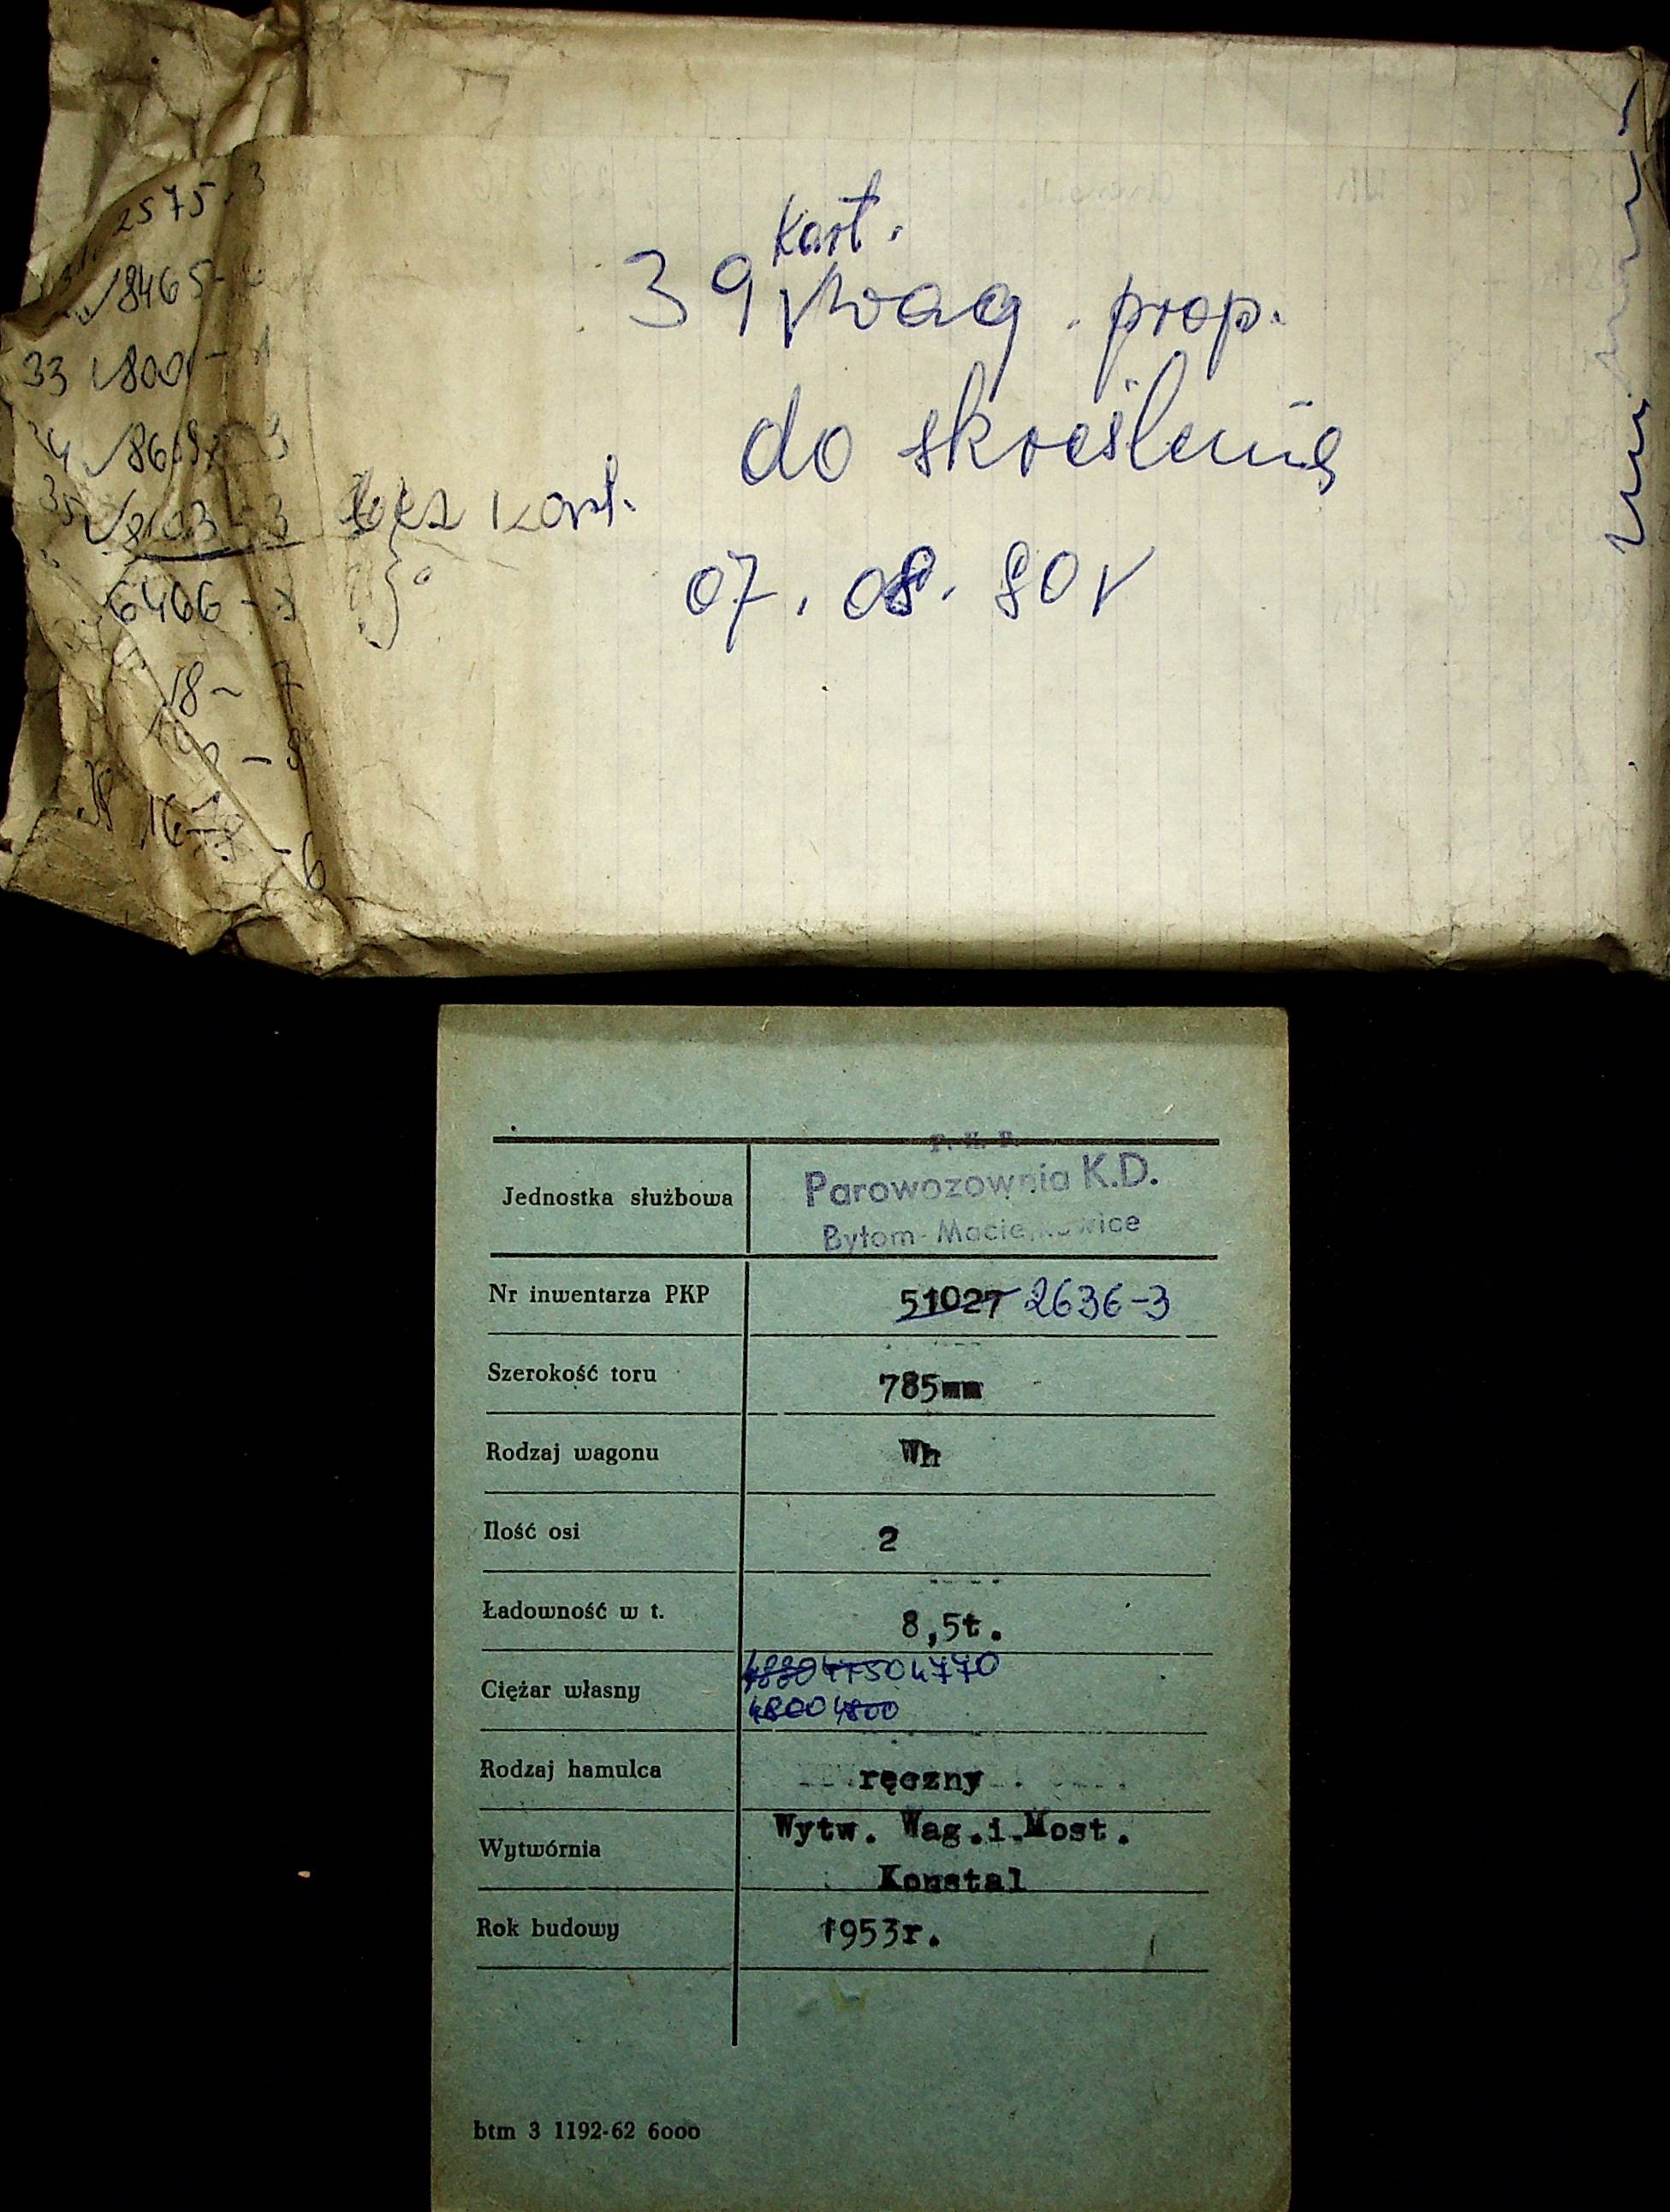 2575-3
8465-
33 800 - 1
34 3
35 8103-3 bez kart.
6466 -
18- 7
16-
-6
Kart.
39 wag. prop.
do skreślenia
07. 08. 80r
P. K. P.
Parowozownia K.D.
Jednostka służbowa
Bytom-Maciejkowice
Nr inwentarza PKP 51027 2636-3
Szerokość toru 785mm
Rodzaj wagonu Wh
Ilość osi 2
Ładowność w t. 8,5t.
4880 4750 4770
Ciężar własny
4800 4800
Rodzaj hamulca ręczny
Wytw. Wag.i.Most.
Wytwórnia
Konstal
Rok budowy 1953r.
btm 3 1192-62 6000